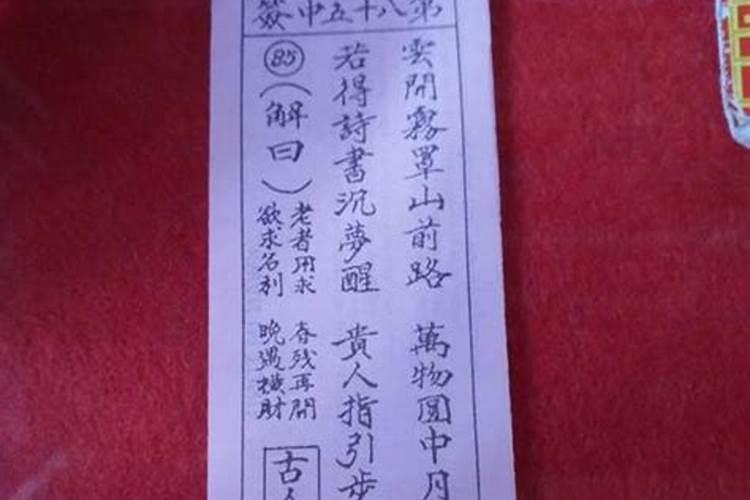 第八十五中簽
雲開霧罩山前路 萬物圓中月
若得詩書沉夢醒 貴人指引步
85（解曰）
老者用求 春残再開
欲求名利 晚遇横財
古